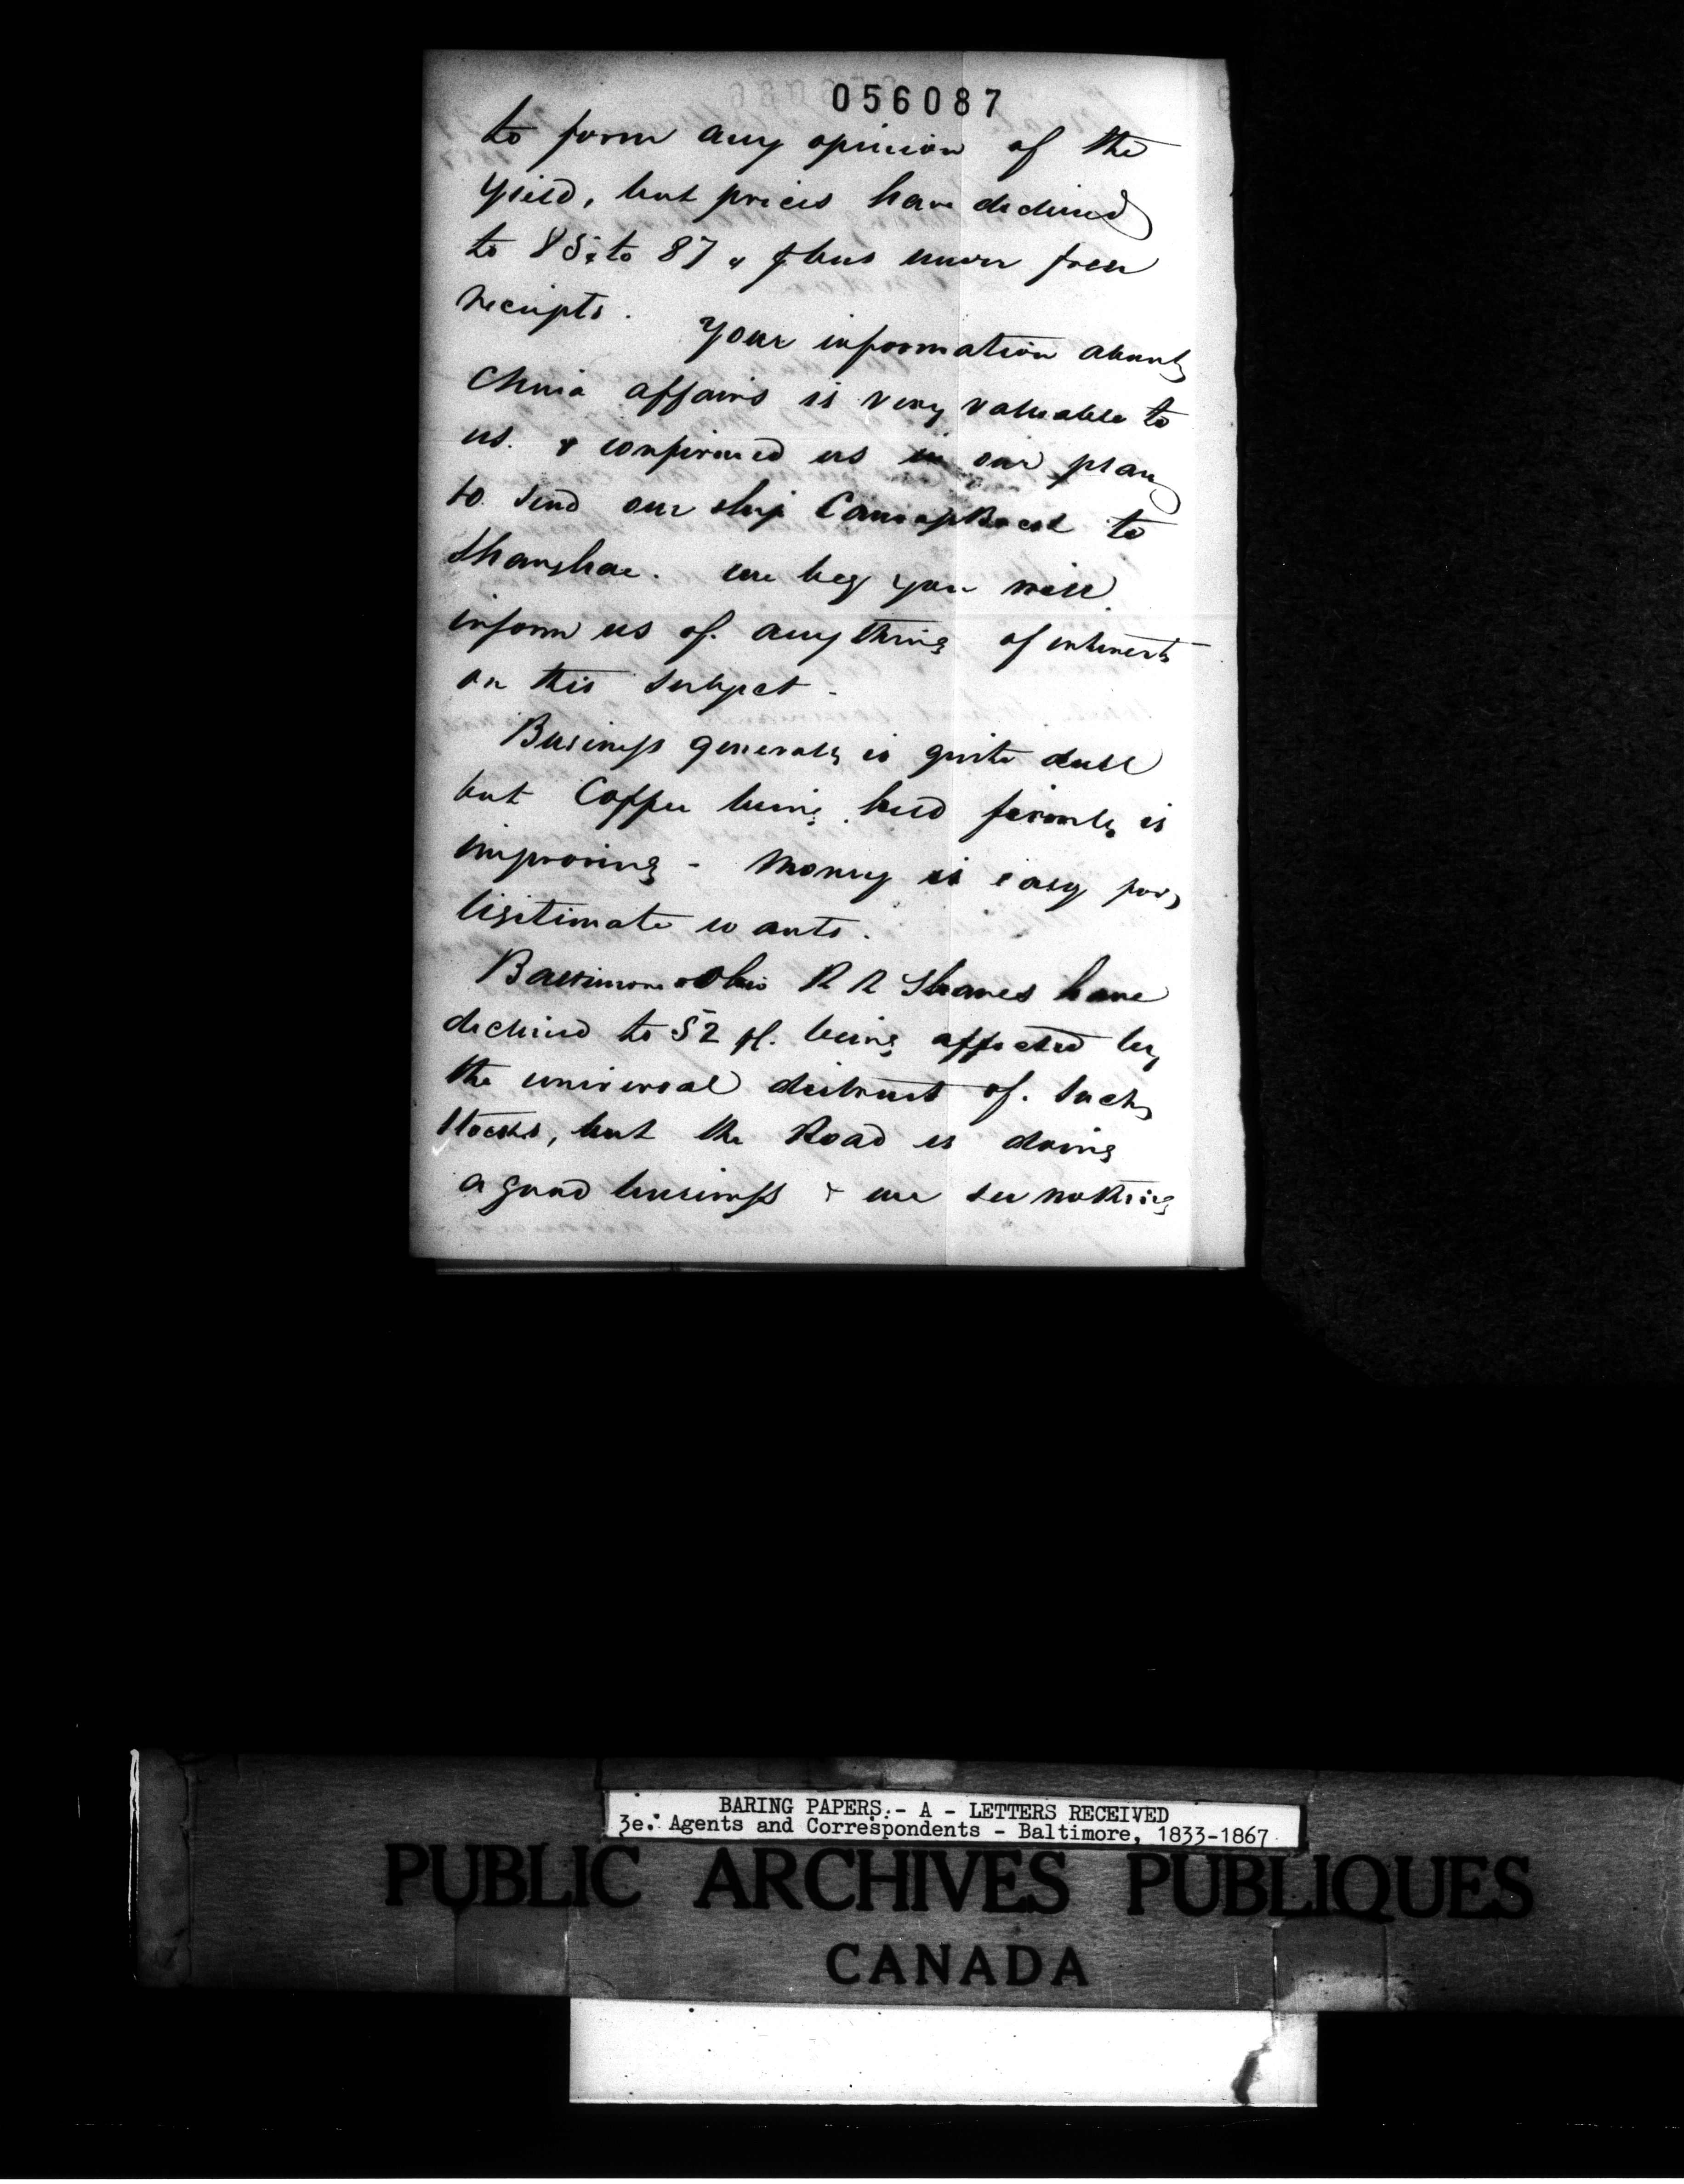 056087
to form any opinion of the
yield, but prices have declined
to 85 to 87 bus under free
receipts.
Your information about
China affairs is very valuable to
us. & confirmed us in our plan
to send our ship to
Shanghae. we beg you will
inform us of. any thing of interest
on this subject -
Business generally is quite dull
but Coffee being held firmly is
improving - Money is easy for
legitimate wants.
Baltimore & Ohio R R Shares have
declined to 52 being affected by
the universal distrust of. such
Stocks, but the Road is doing
a good business & we see nothing
BARING PAPERS.- A - LETTERS RECEIVED
3e. Agents and Correspondents - Baltimore, 1833-1867
PUBLIC ARCHIVES PUBLIQUES
CANADA